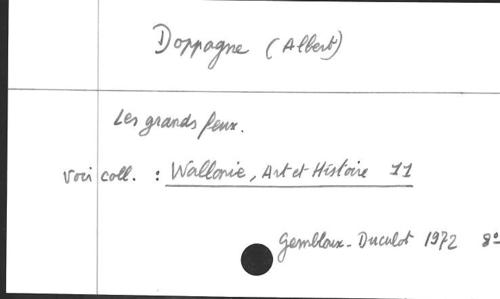 Doppagne (Albert)
Les grands feux.
voir coll. : Wallonie, Art et Histoire 11
Gembloux - Duculot 1972 8°